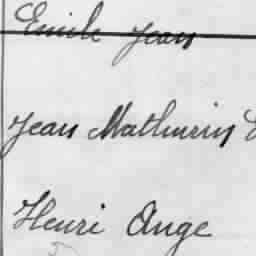 Emile Jean
Jean Mathurin
Henri Ange